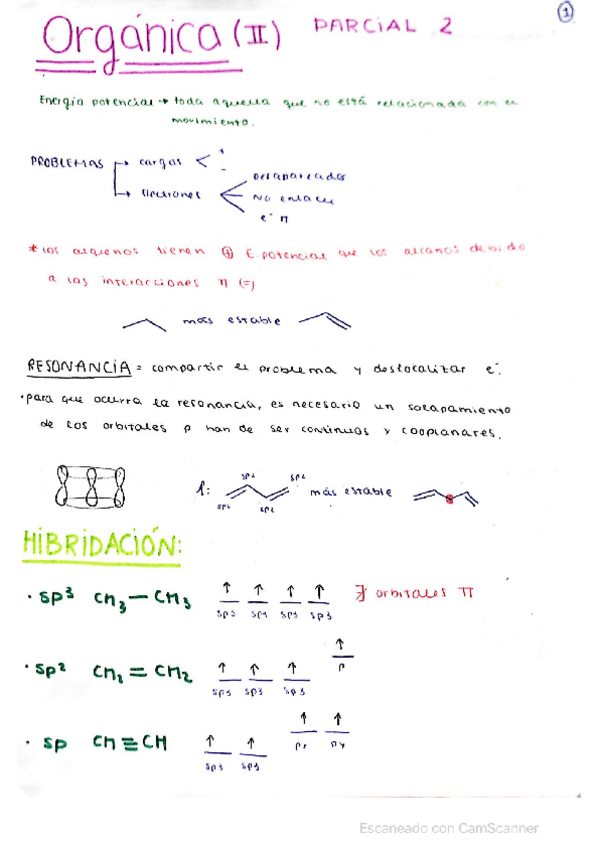 Orgánica (II) PARCIAL 2
1
Energía potencial → toda aquella que no está relacionada con el
movimiento.
PROBLEMAS → cargas < + -
→ electrones
Desapareados
No enlace
e⁻ π
* Los alquenos tienen ⊕ E. potencial que los alcanos debido
a las interacciones π (=)
más estable
RESONANCIA = compartir el problema y deslocalizar e⁻.
· para que ocurra la resonancia, es necesario un solapamiento
de los orbitales p han de ser continuos y cooplanares.
sp2 sp2
1: más estable
sp2 sp2
HIBRIDACIÓN:
· sp³ CH3 — CH3 ↑ ↑ ↑ ↑ ∄ orbitales π
sp3 sp3 sp3 sp3
· sp² CH2 = CH2 ↑ ↑ ↑ ↑
sp3 sp3 sp3 p
· sp CH ≡ CH ↑ ↑ ↑ ↑
sp3 sp3 pz py
Escaneado con CamScanner